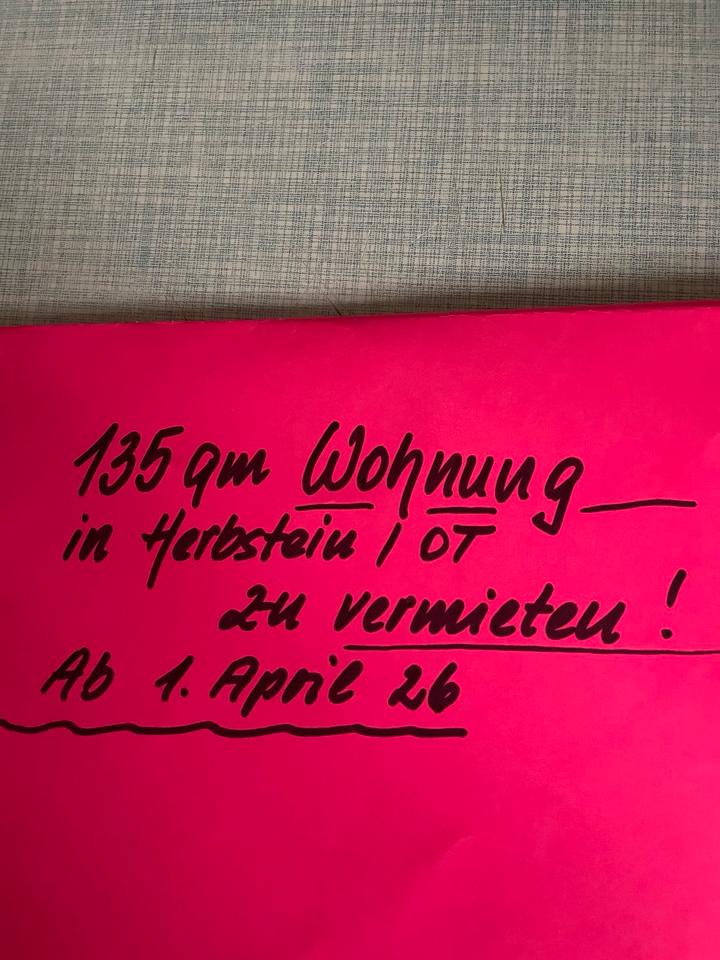 135 qm Wohnung
in Herbstein / OT
zu vermieten!
Ab 1. April 26